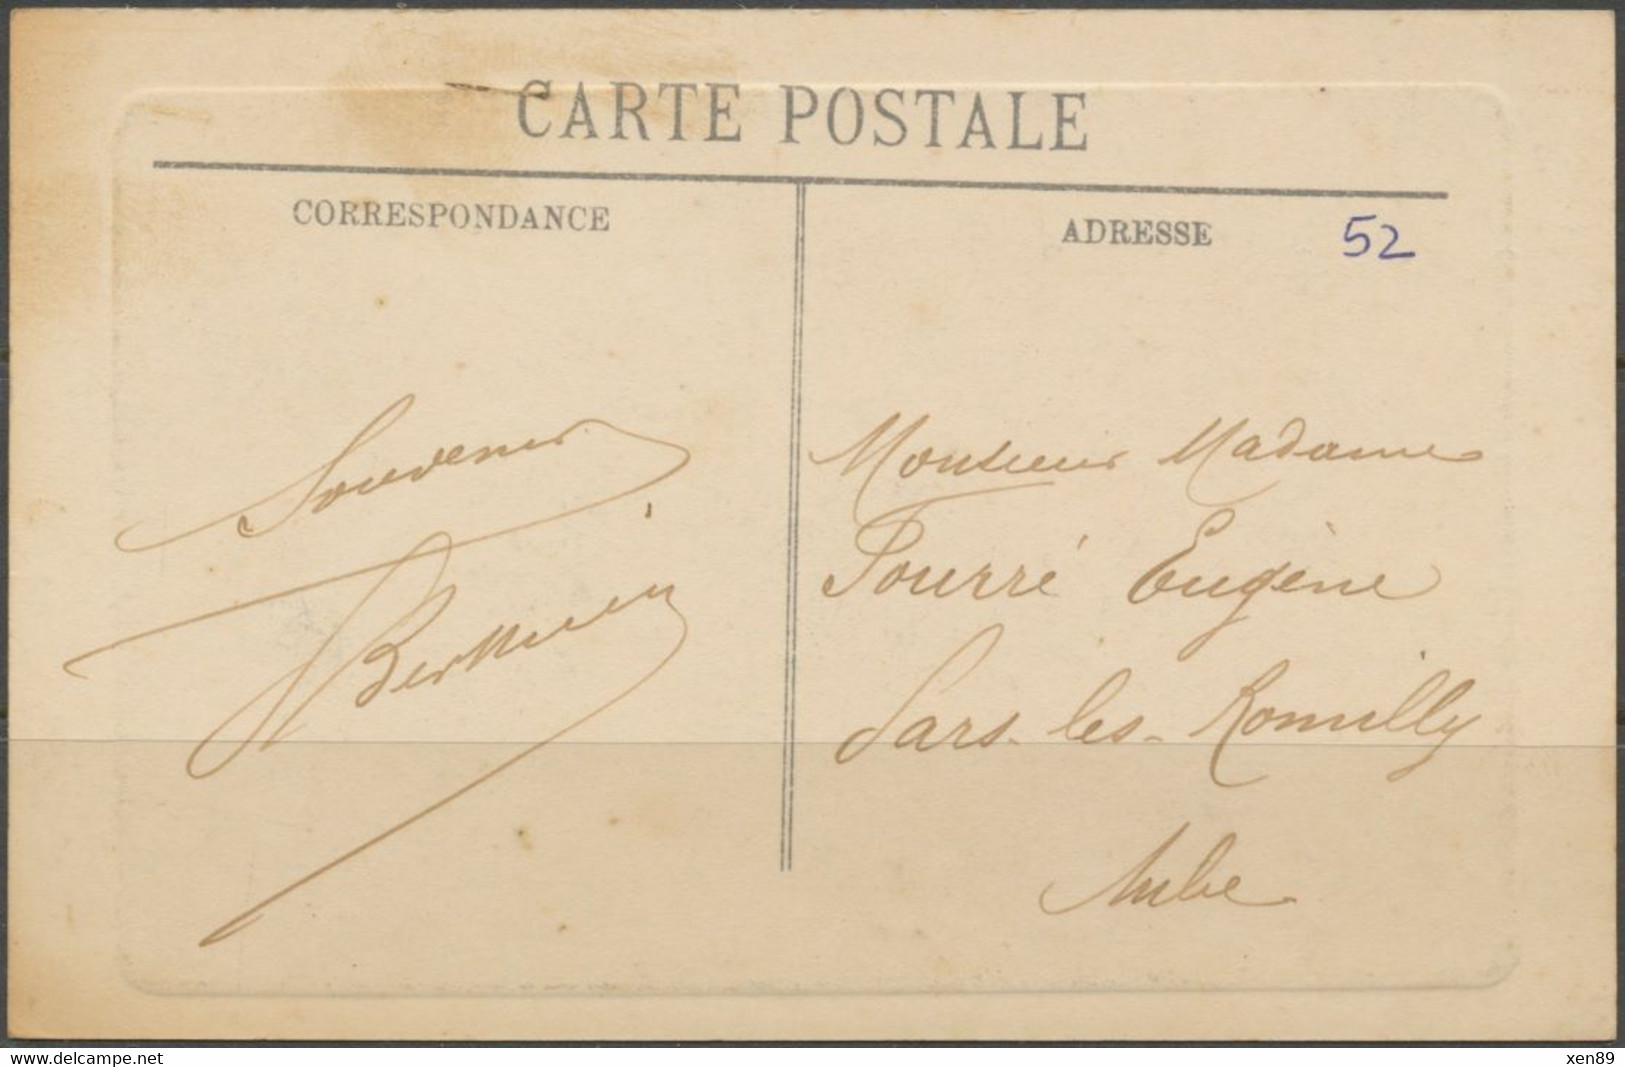 CARTE POSTALE
CORRESPONDANCE
ADRESSE
52
Souvenir
Monsieur Madame
Pourré Eugène
Sars-les-Romilly
Aube
www.delcampe.net
xen89